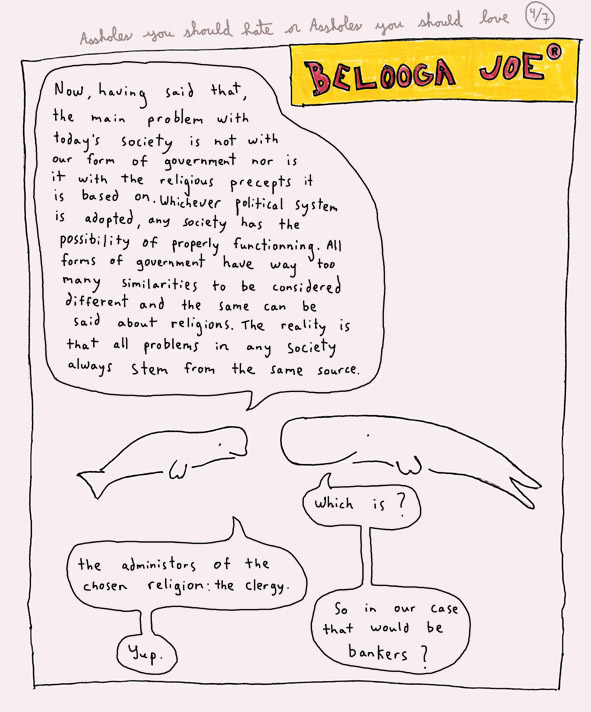 Assholes you should hate or Assholes you should love 4/7
BELOOGA JOE®
Now, having said that,
the main problem with
today's society is not with
our form of government nor is
it with the religious precepts it
is based on. Whichever political system
is adopted, any society has the
possibility of properly functionning. All
forms of government have way too
many similarities to be considered
different and the same can be
said about religions. The reality is
that all problems in any society
always stem from the same source.
Which is?
the administors of the
chosen religion: the clergy.
So in our case
that would be
bankers?
Yup.